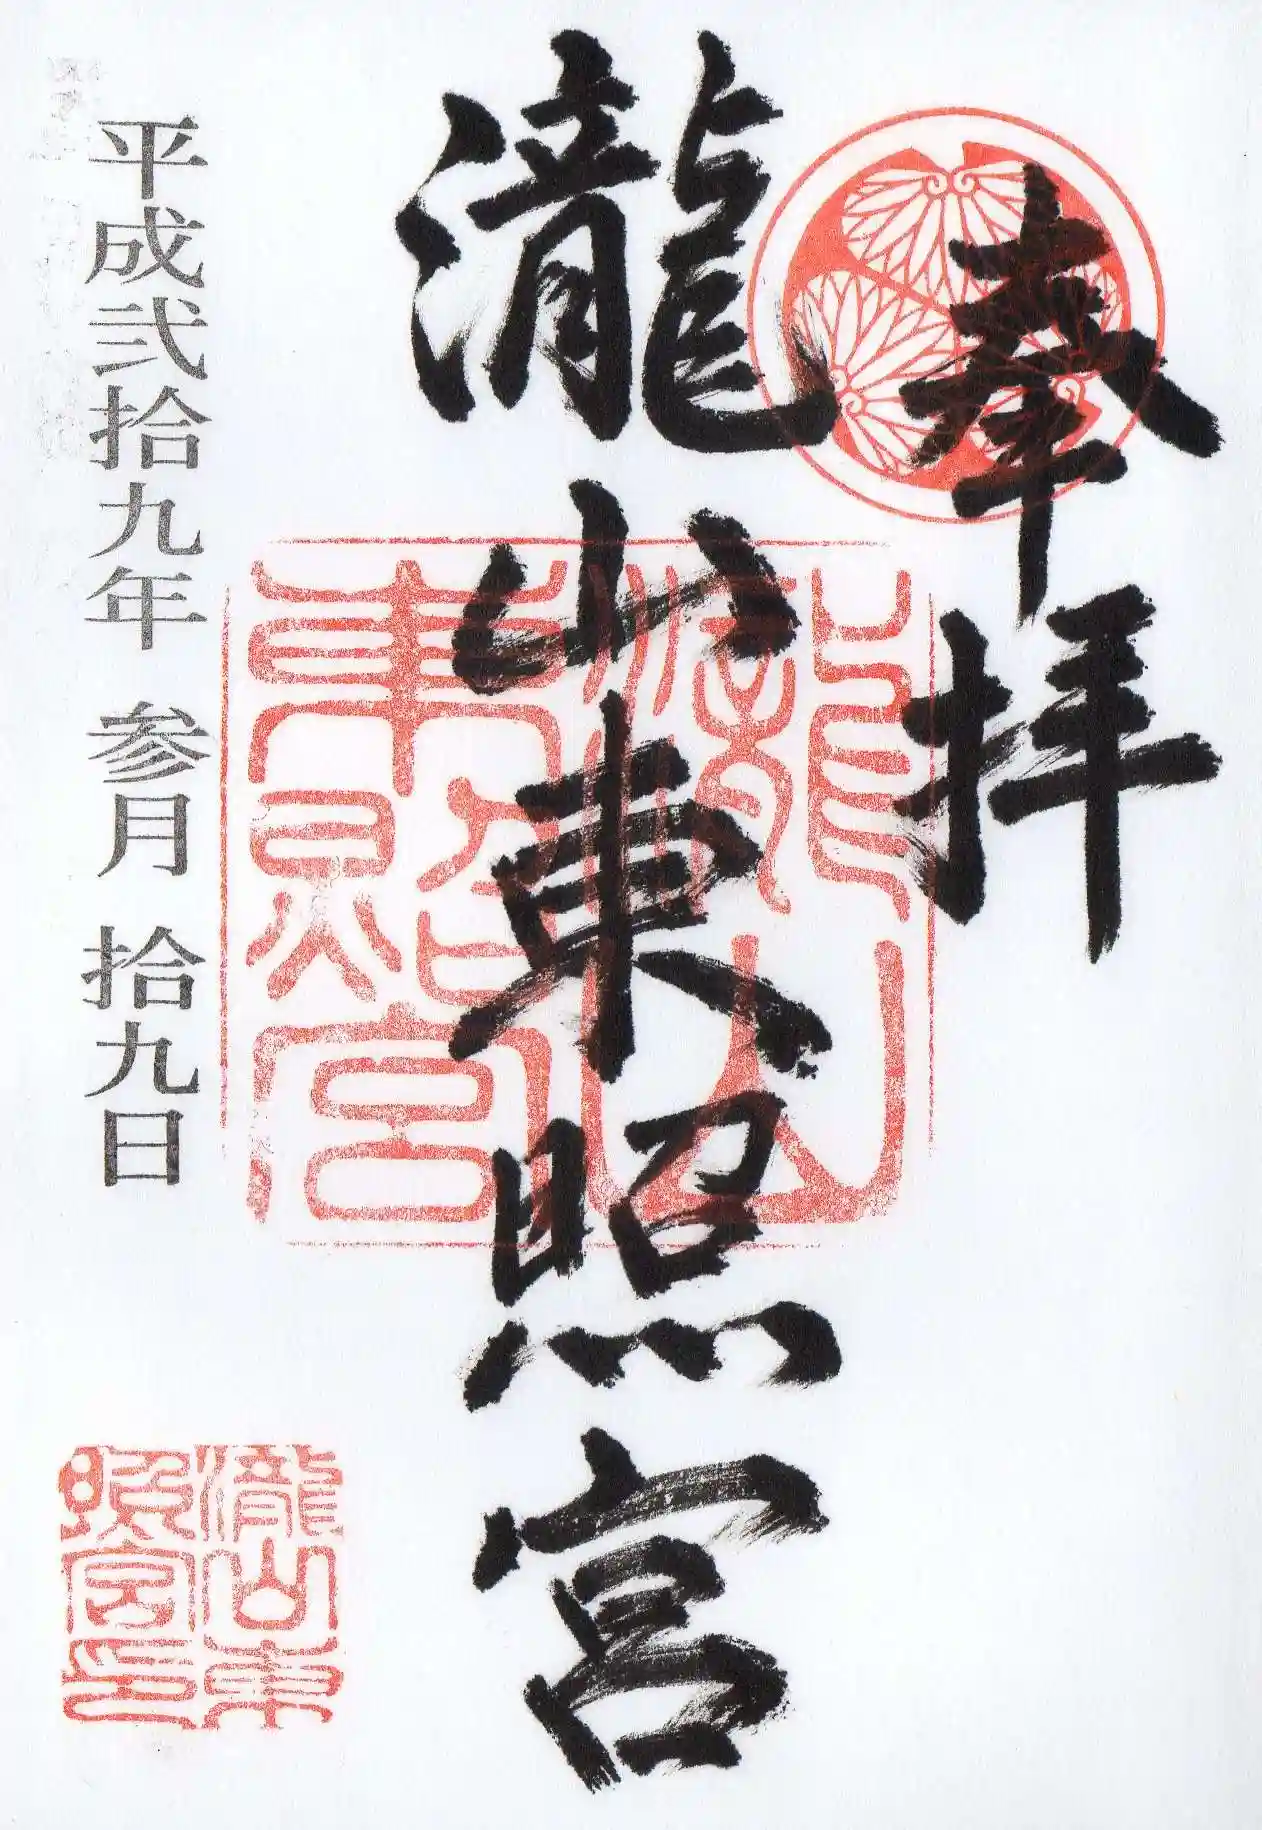 奉拝
瀧山東照宮
瀧山
東照宮
平成弐拾九年 参月 拾九日
瀧山東
照宮印